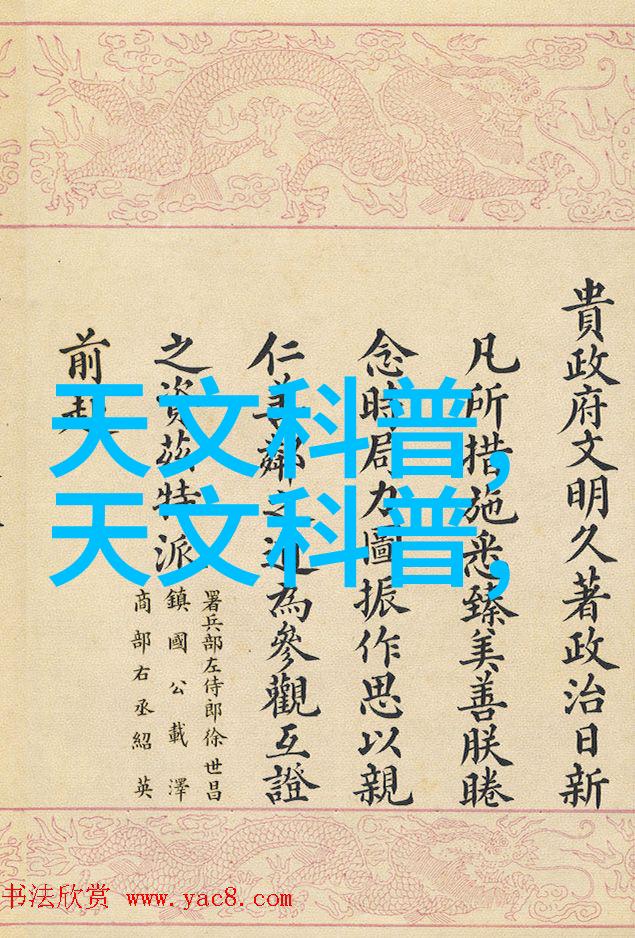 貴政府文明久著政治日新
凡所措施悉臻美善朕睠
念時局力圖振作思以親
仁善鄰之道為參觀互證
之資茲特派
署兵部左侍郎徐世昌
鎮國公載澤
商部右丞紹英
前赴
天文科普,
天文科普,
书法欣赏 www.yac8.com